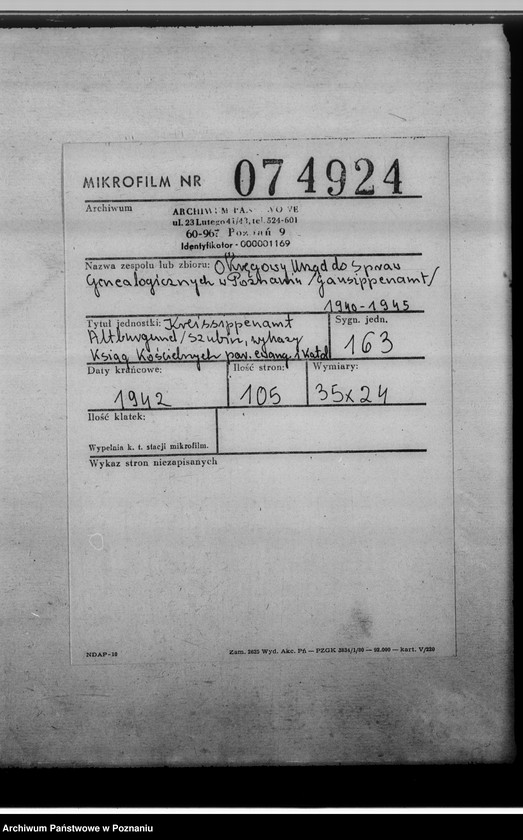 MIKROFILM NR 074924
Archiwum
ul. 23 Lutego 41/43, tel. 524-601
60-967 Poznań 9
Identyfikator - 000001169
Nazwa zespołu lub zbioru: Okręgowy Urząd do Spraw
Genealogicznych w Poznaniu /Gausippenamt/
1940-1945
Tytuł jednostki: Kreissippenamt
Altburgund/Szubin, wykazy
Ksiąg Kościelnych par. ewang. i katol
Sygn. jedn.
163
Daty krańcowe:
1942
Ilość stron:
105
Wymiary:
35x24
Ilość klatek:
Wypełnia k. t. stacji mikrofilm.
Wykaz stron niezapisanych
NDAP-18
Zam. 2625 Wyd. Akc. Pń — PZGK
Archiwum Państwowe w Poznaniu